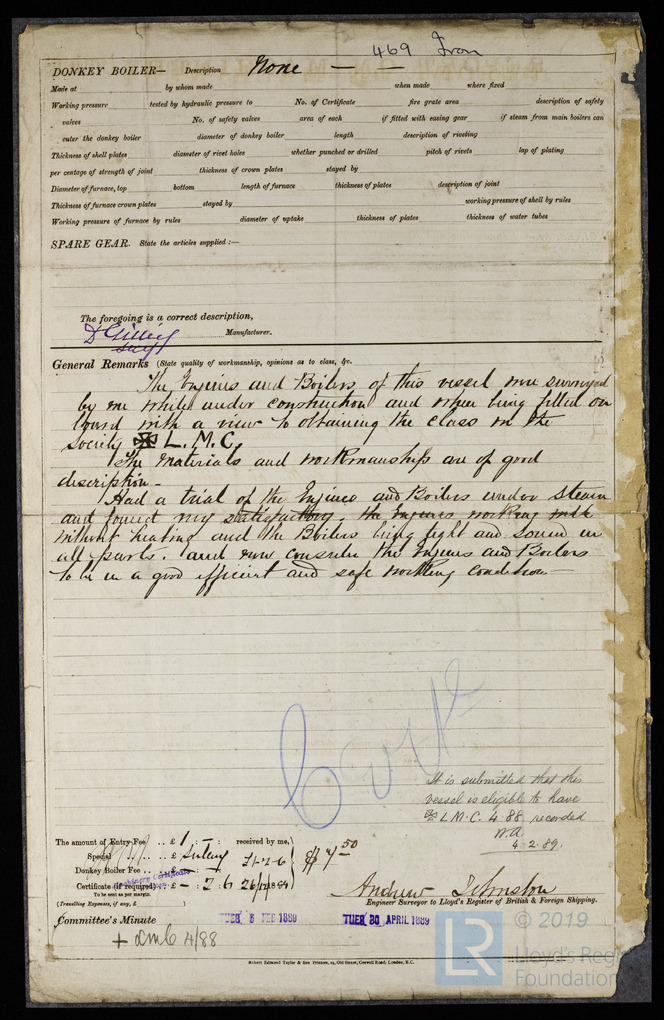 469 Iron
DONKEY BOILER— Description None — —
Made at by whom made when made where fixed
Working pressure tested by hydraulic pressure to No. of Certificate fire grate area description of safety
valves No. of safety valves area of each if fitted with easing gear if steam from main boilers can
enter the donkey boiler diameter of donkey boiler length description of riveting
Thickness of shell plates diameter of rivet holes whether punched or drilled pitch of rivets lap of plating
per centage of strength of joint thickness of crown plates stayed by
Diameter of furnace, top bottom length of furnace thickness of plates description of joint
Thickness of furnace crown plates stayed by working pressure of shell by rules
Working pressure of furnace by rules diameter of uptake thickness of plates thickness of water tubes
SPARE GEAR. State the articles supplied :—
The foregoing is a correct description,
Manufacturer.
General Remarks (State quality of workmanship, opinions as to class, &c.
The Engines and Boilers of this vessel were surveyed
by me while under construction and when being fitted on
board with a view to obtaining the class in the
Society ✠ L. M. C.
The materials and workmanship are of good
description -
Had a trial of the Engines and Boilers under steam
and found satisfactory. the Engines working
without heating and the Boilers being tight and sound in
all parts. and now consider the Engines and Boilers
to be in a good efficient and safe working condition
It is submitted that this
vessel is eligible to have
✠ L.M.C. 4.88 recorded
4.2.89.
The amount of Entry Fee .. £ 1 : - : received by me,
Special .. .. £
Donkey Boiler Fee .. .. £
Certificate (if required) .. £ - 2 6
To be sent as per margin.
(Travelling Expenses, if any, £ )
$7 50
Andrew Johnston
Engineer Surveyor to Lloyd's Register of British & Foreign Shipping.
Committee's Minute TUES 5 FEB 1889 TUES 30 APRIL 1889
+ LMC 4/88
Robert Edmund Taylor & Son Printers, 19, Old Street, Goswell Road, London, E.C.
LR
© 2019
Lloyd's Reg
Foundation